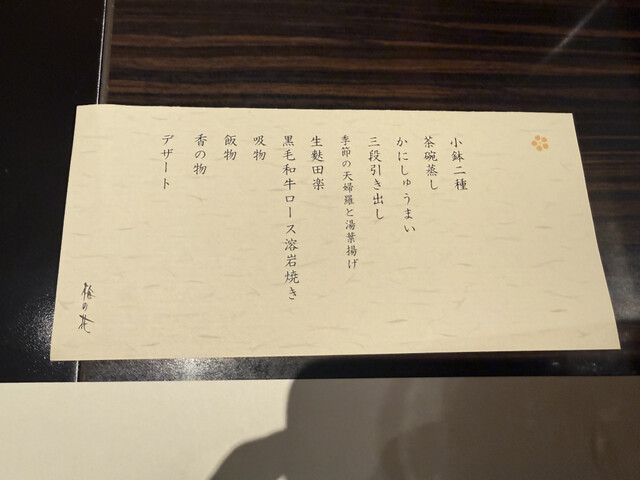 小鉢二種
茶碗蒸し
かにしゅうまい
三段引き出し
季節の天婦羅と湯葉揚げ
生麩田楽
黒毛和牛ロース溶岩焼き
吸物
飯物
香の物
デザート
梅の花